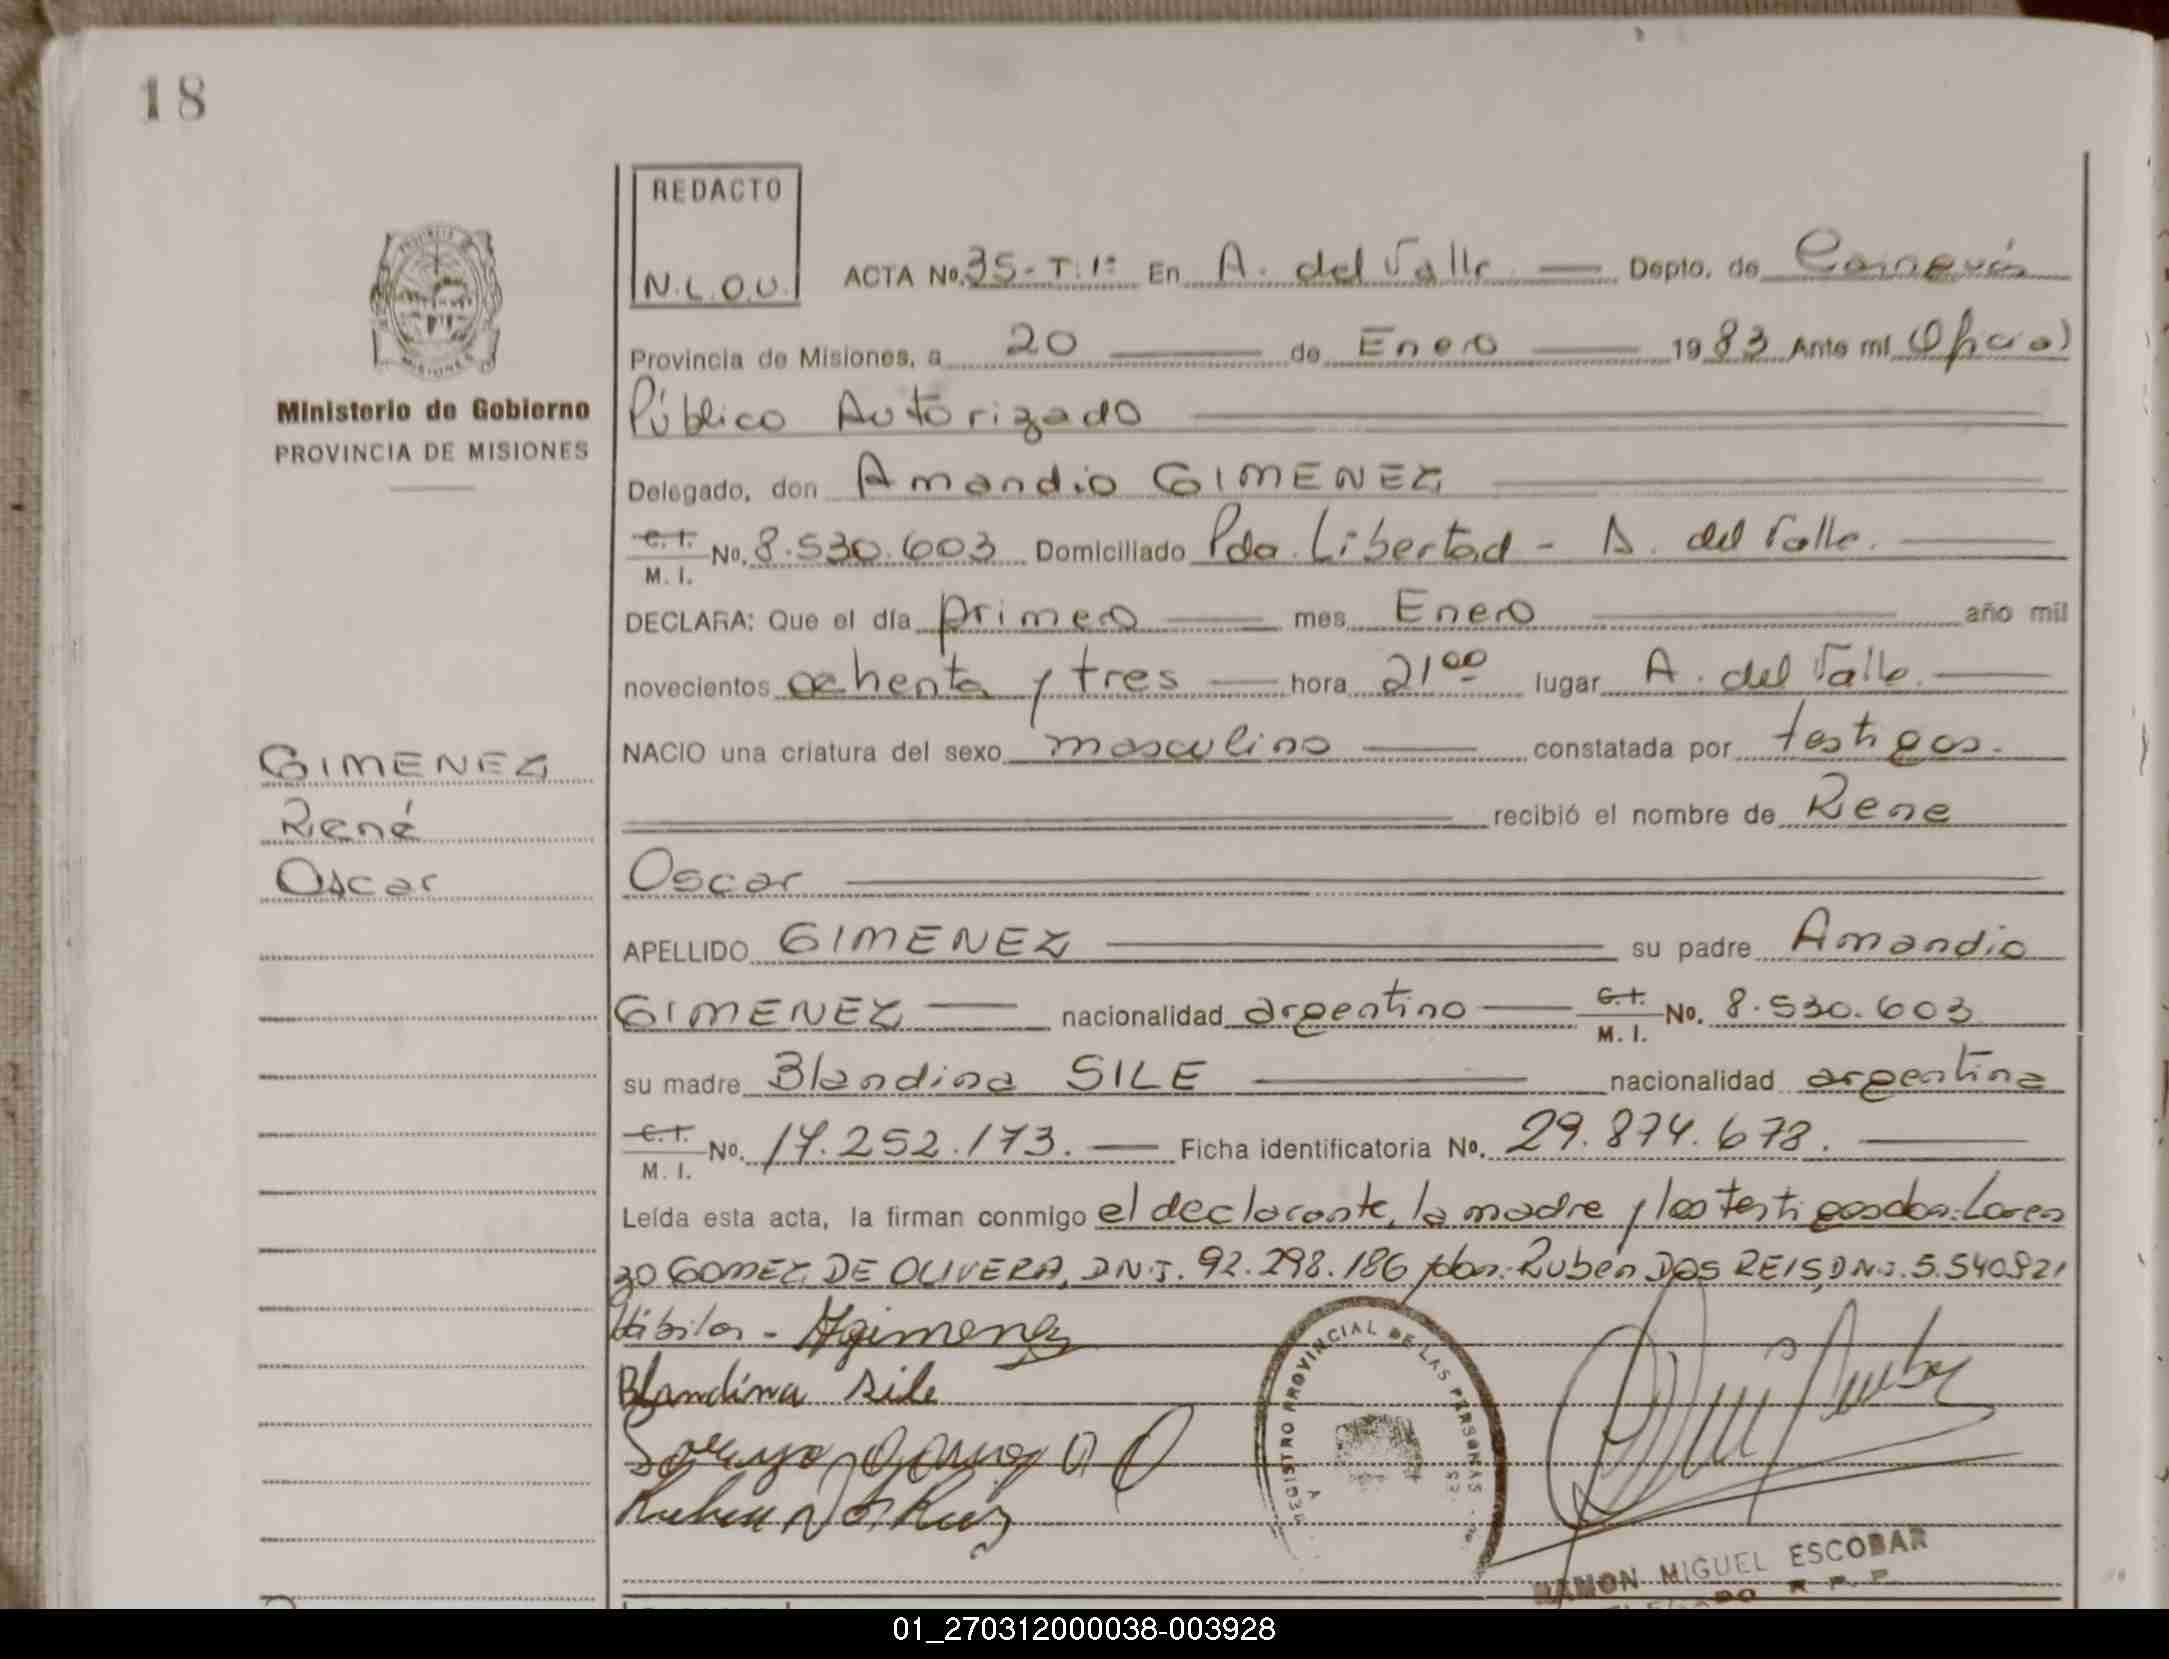 18
REDACTO
N.L.O.U.
ACTA No. 35-T.1º En A. del Valle Depto. de
Provincia de Misiones, a 20 de Enero 1983 Ante mí (Oficial)
Público Autorizado
Ministerio de Gobierno
PROVINCIA DE MISIONES
Delegado, don Amandio GIMENEZ
C.I. M.I. No. 8.530.603 Domiciliado Pda. Libertad - A. del Valle.
DECLARA: Que el día primero mes Enero año mil
novecientos ochenta y tres hora 21⁰⁰ lugar A. del Valle.
NACIO una criatura del sexo masculino constatada por testigos.
GIMENEZ
René
Oscar
recibió el nombre de Rene
Oscar
APELLIDO GIMENEZ su padre Amandio
GIMENEZ nacionalidad argentino C.I. M.I. No. 8.530.603
su madre Blandina SILE nacionalidad argentina
C.I. M.I. No. 17.252.173. Ficha identificatoria No. 29.874.678.
Leída esta acta, la firman conmigo el declarante, la madre y los testigos don: Loren
zo GOMEZ DE OLIVERA, D.N.I. 92.298.186 y don: Rubén DOS REIS, D.N.I. 5.540.921
Hábiles - AGimenez
Blandina Sile
REGISTRO PROVINCIAL DE LAS PERSONAS
RAMON MIGUEL ESCOBAR
01_270312000038-003928